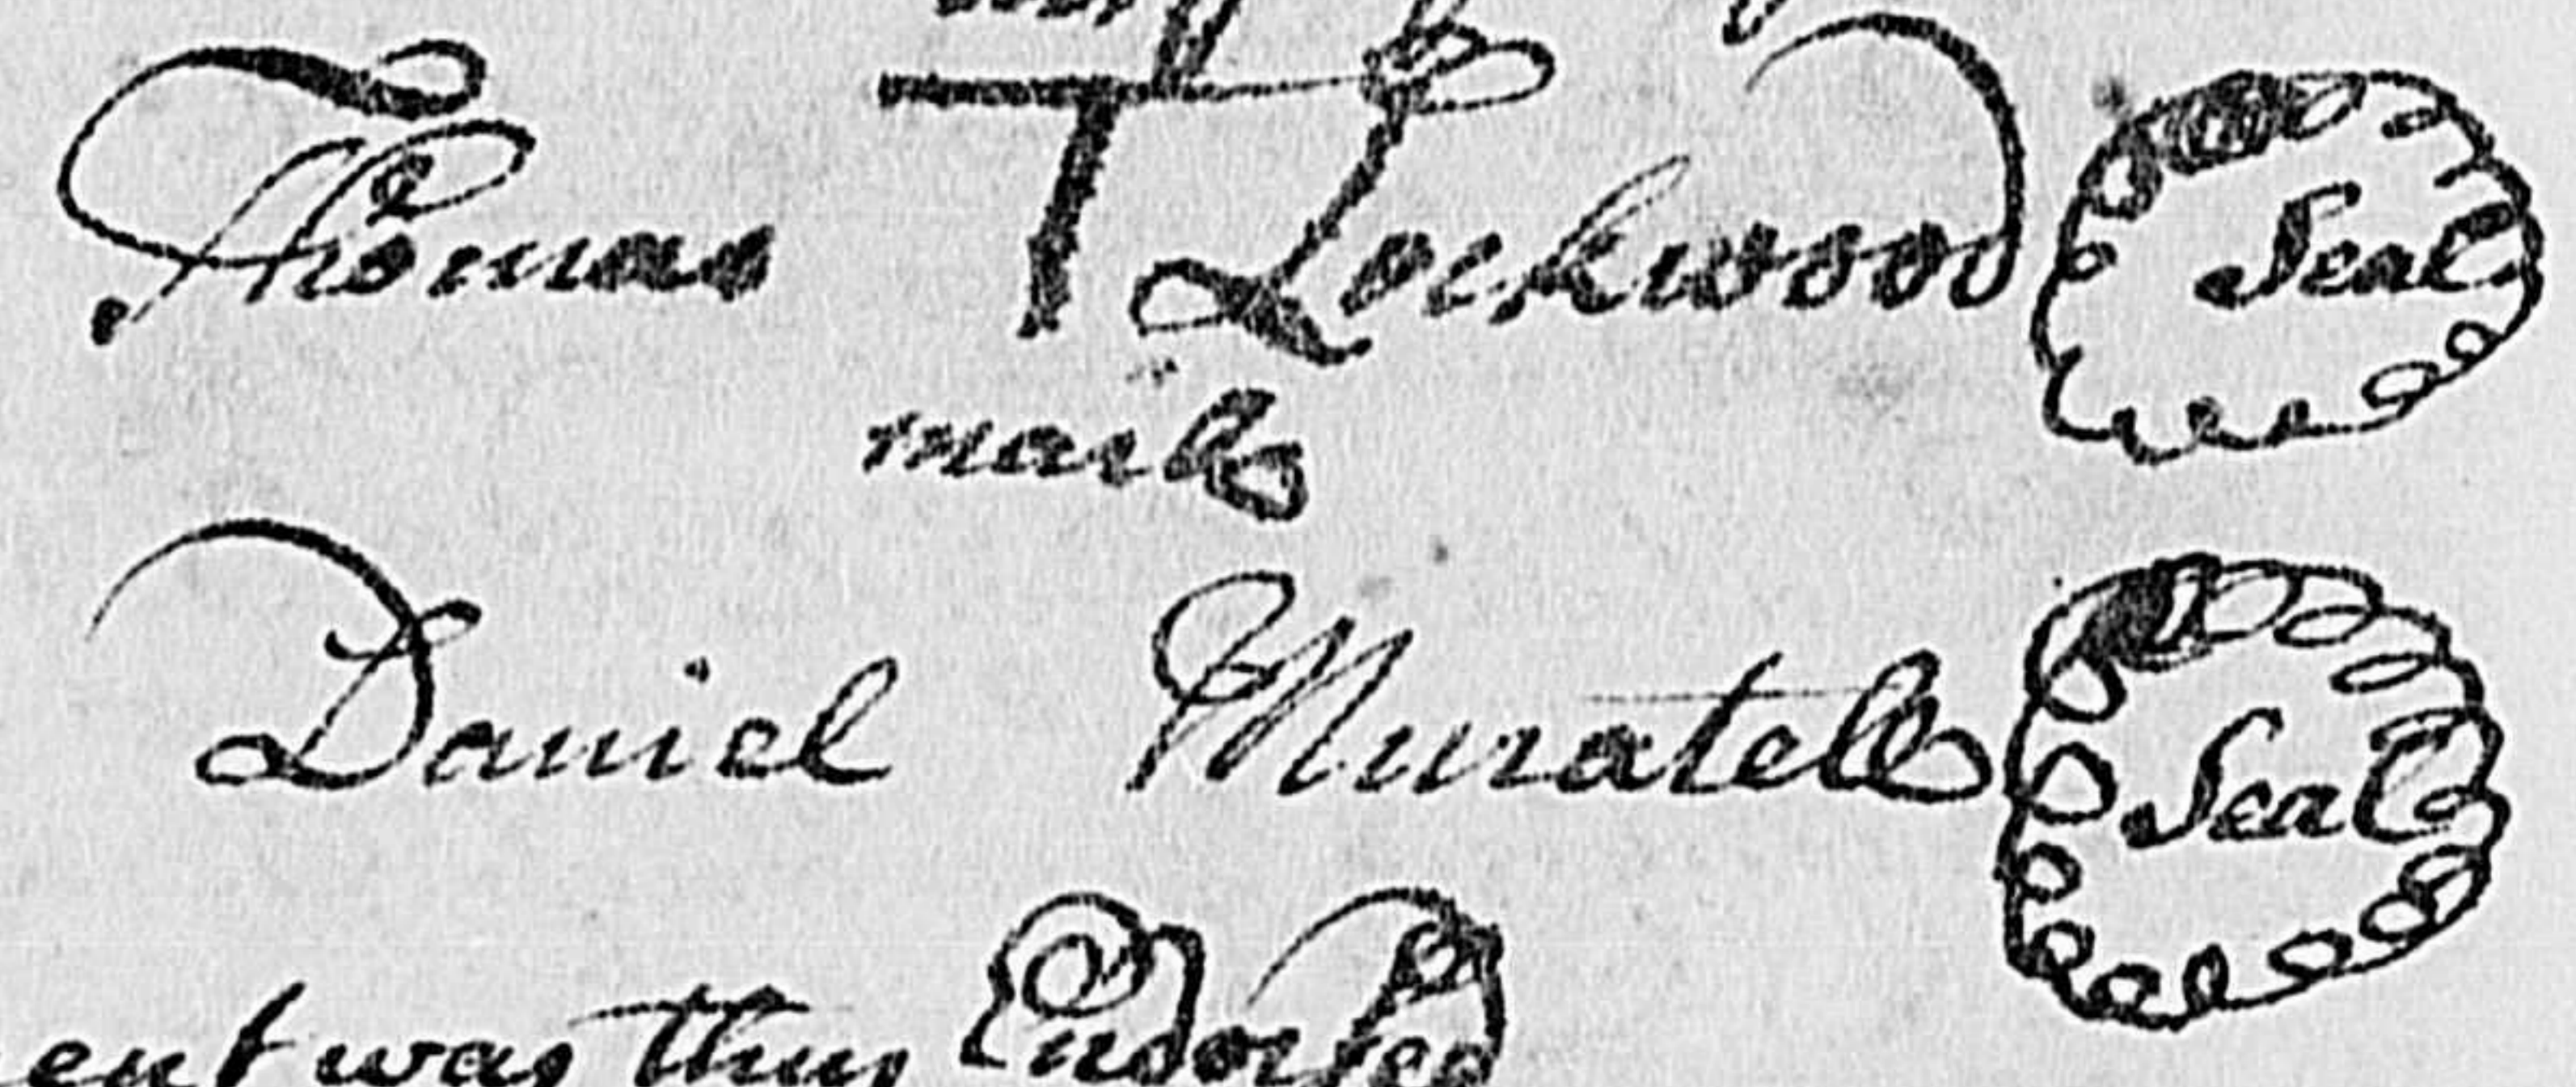 Thomas T Lockwood Seal
mark
Daniel Muratell Seal
ent was thus Endorsed